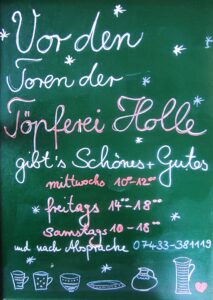 Vor den
Toren der
Töpferei Holle
gibt's Schönes + Gutes
mittwochs 10⁰⁰-12⁰⁰
freitags 14⁰⁰-18⁰⁰
samstags 10 - 18⁰⁰
und nach Absprache 07433-381119